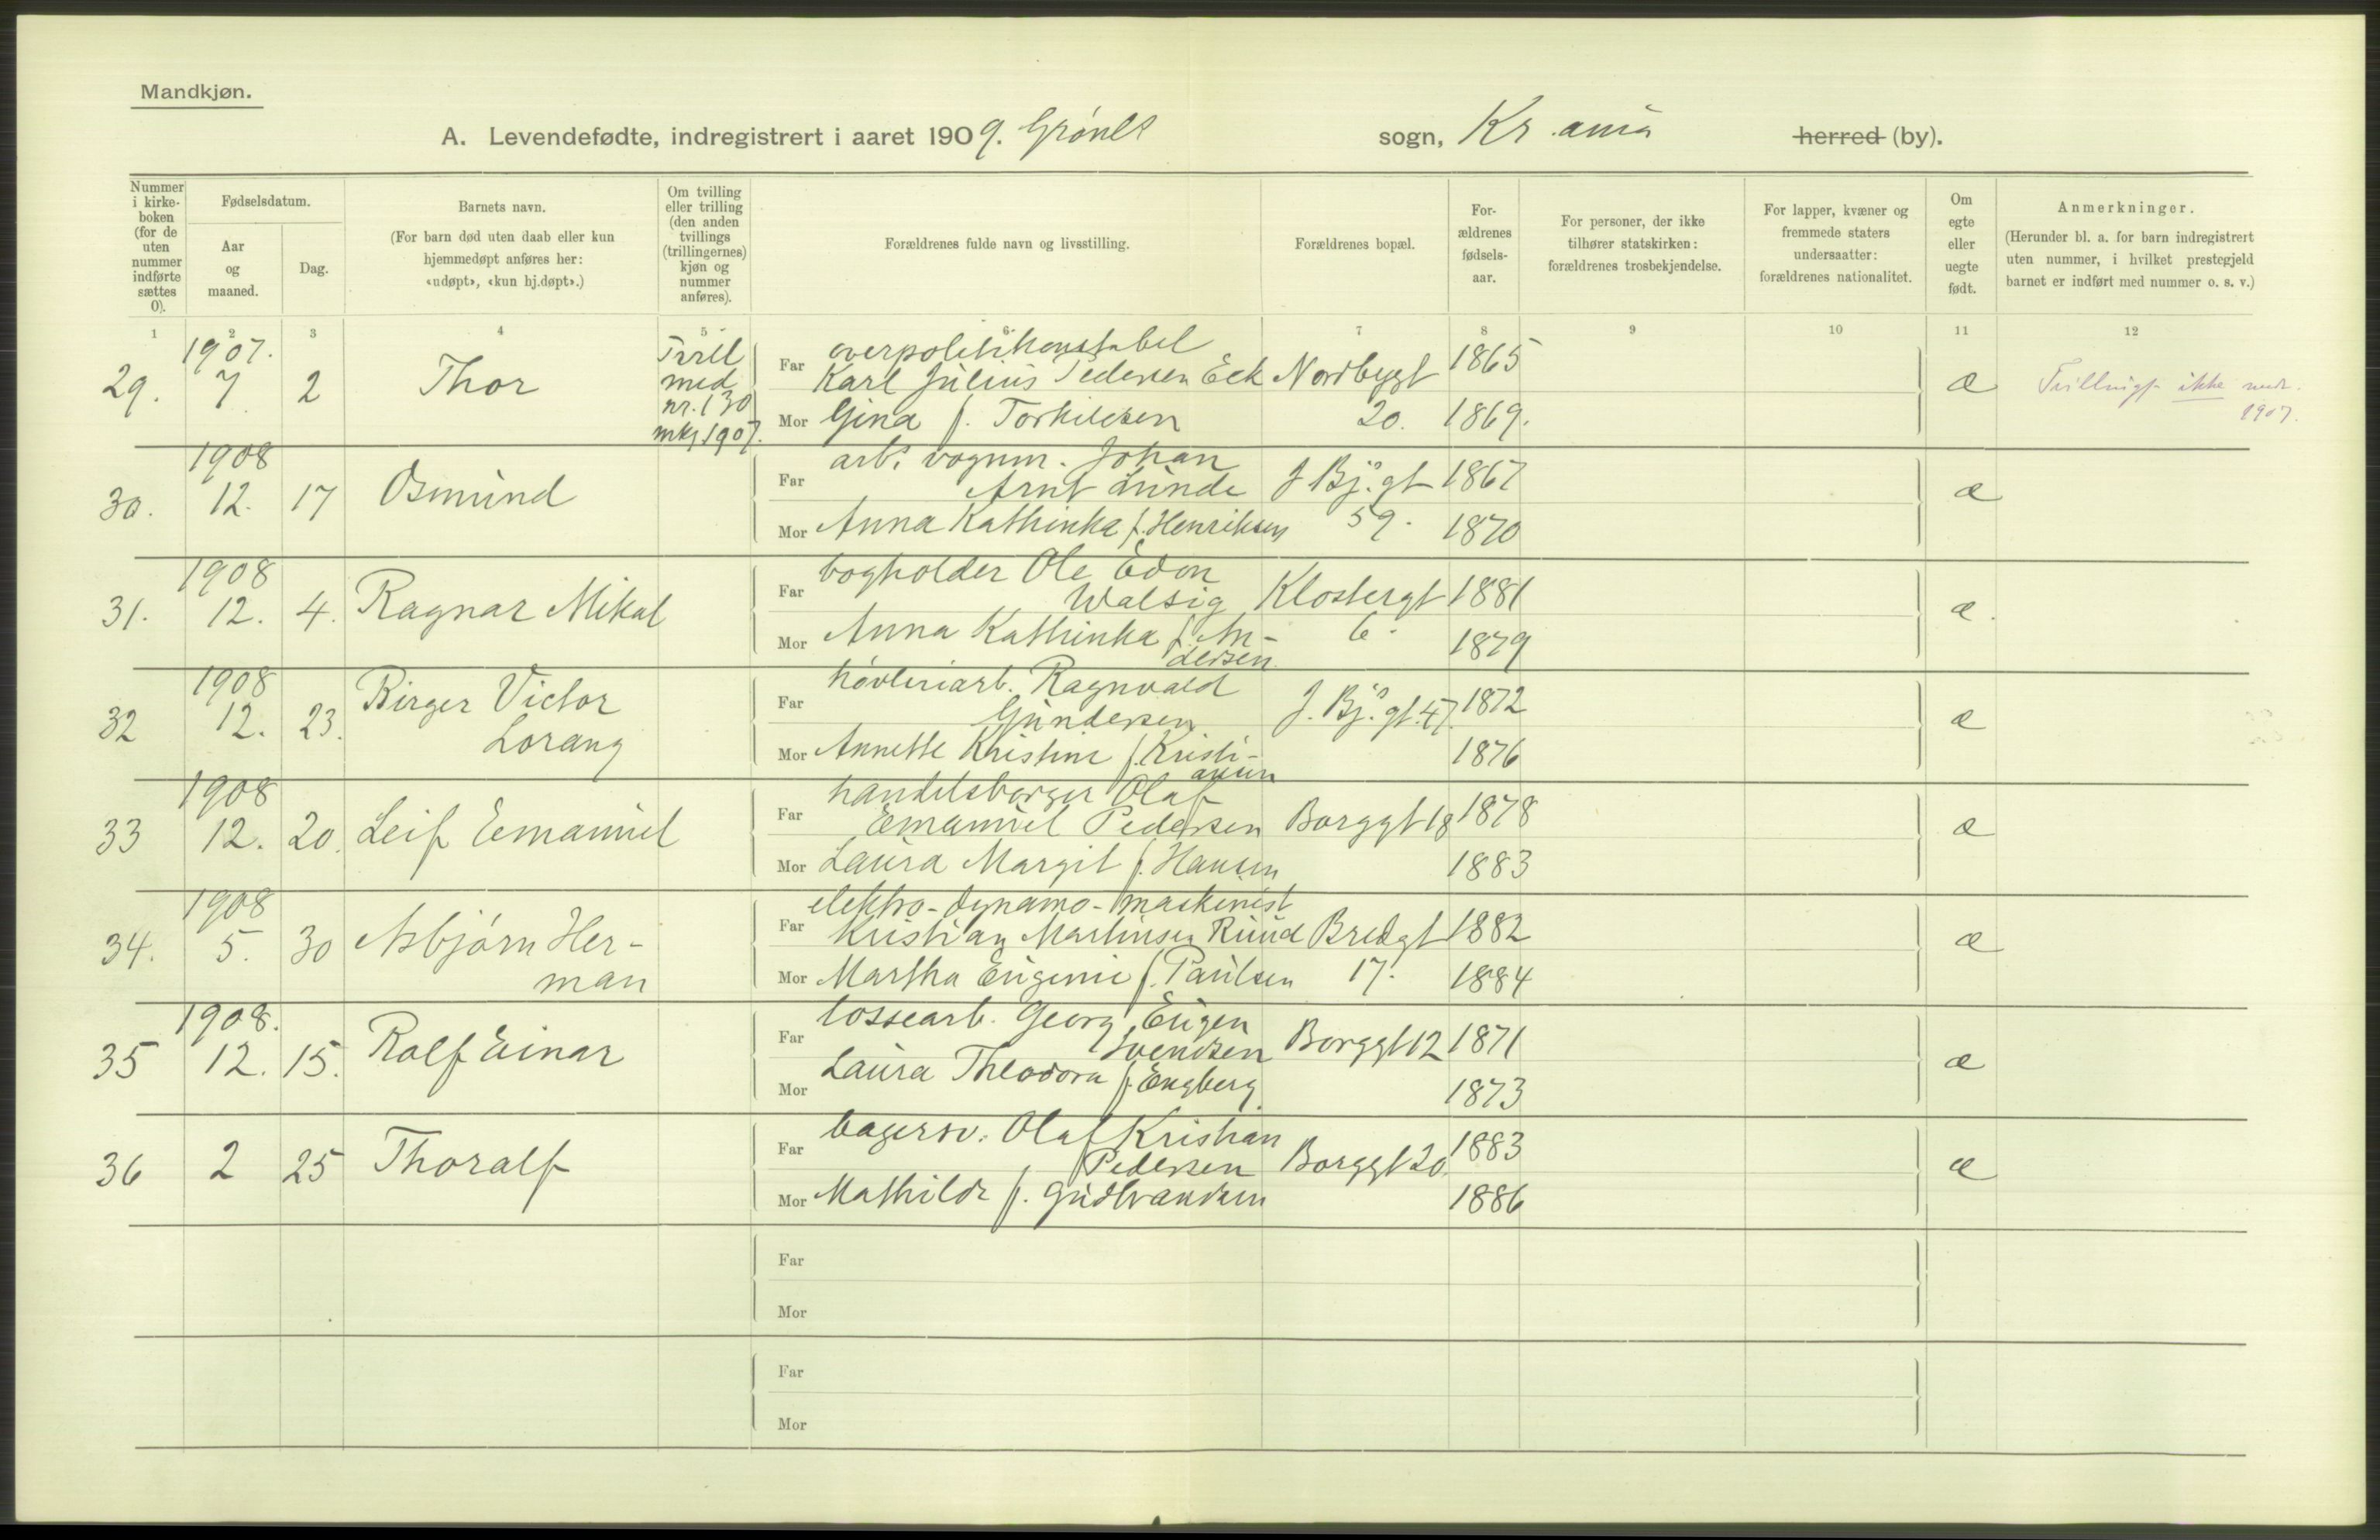 Mandkjøn.
A. Levendefødte, indregistrert i aaret 1909. Grønl. sogn, Kr.ania herred (by).
Nummer i kirkeboken (for de uten nummer indførte sættes 0).
Fødselsdatum.
Aar og maaned.
Dag.
Barnets navn.
(For barn død uten daab eller kun hjemmedøpt anføres her: «udøpt», «kun hj.døpt».)
Om tvilling eller trilling (den anden tvillings (trillingernes) kjøn og nummer anføres).
Forældrenes fulde navn og livsstilling.
Forældrenes bopæl.
Forældrenes fødselsaar.
For personer, der ikke tilhører statskirken: forældrenes trosbekjendelse.
For lapper, kvæner og fremmede staters undersaatter: forældrenes nationalitet.
Om egte eller uegte født.
Anmerkninger.
(Herunder bl. a. for barn indregistrert uten nummer, i hvilket prestegjeld barnet er indført med nummer o. s. v.)
1 2 3 4 5 6 7 8 9 10 11 12
29. 1907. 7 2 Thor
med nr. 130 mkj 1907.
Far overpolitikonstabel Karl Julius Pedersen Eek Nordbygt 20. 1865
Mor Gina f. Torkildsen 1869.
æ ikke 1907.
30. 1908 12. 17 Osmund
Far arb. vognm. Johan Arnt Lunde J Bj.s gt 59. 1867
Mor Anna Kathinka f. Henriksen 1870
æ
31. 1908 12. 4. Ragnar Mikal
Far bogholder Ole Edon Walsig Klostergt 6. 1881
Mor Anna Kathinka f. An-dersen 1879
æ.
32 1908 12. 23. Birger Victor Lorang
Far høvleriarb. Ragnvald Gundersen J. Bj.s gt. 47. 1872
Mor Annette Kristine f. Kristi-ansen 1876
æ
33 1908 12. 20. Leif Eemanuel
Far handelsborger Olaf Emanuel Pedersen Borggt 18 1878
Mor Laura Margit f. Hansen 1883
æ
34. 1908 5. 30 Asbjørn Her-man
Far elektro-dynamo-maskinist Kristian Martinsen Ruud Bredgt 17. 1882
Mor Martha Eugenie f. Paulsen 1884
æ
35 1908. 12. 15. Rolf Einar
Far tossearb. Georg Eugen Svendsen Borggt 12 1871
Mor Laura Theodora f. Engberg. 1873
æ
36 2 25 Thoralf
Far bagersv. Olaf Kristian Pedersen Borggt 20. 1883
Mor Mathilde f. Gudbrandsen 1886
æ
Far
Mor
Far
Mor